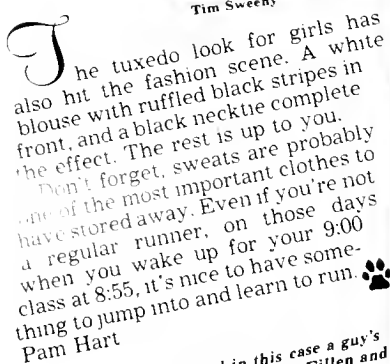 Tim Sweeny
The tuxedo look for girls has
also hit the fashion scene. A white
blouse with ruffled black stripes in
front, and a black necktie complete
the effect. The rest is up to you.
Don't forget, sweats are probably
one of the most important clothes to
have stored away. Even if you're not
a regular runner, on those days
when you wake up for your 9:00
class at 8:55, it's nice to have some-
thing to jump into and learn to run.
Pam Hart
in this case a guy's
and